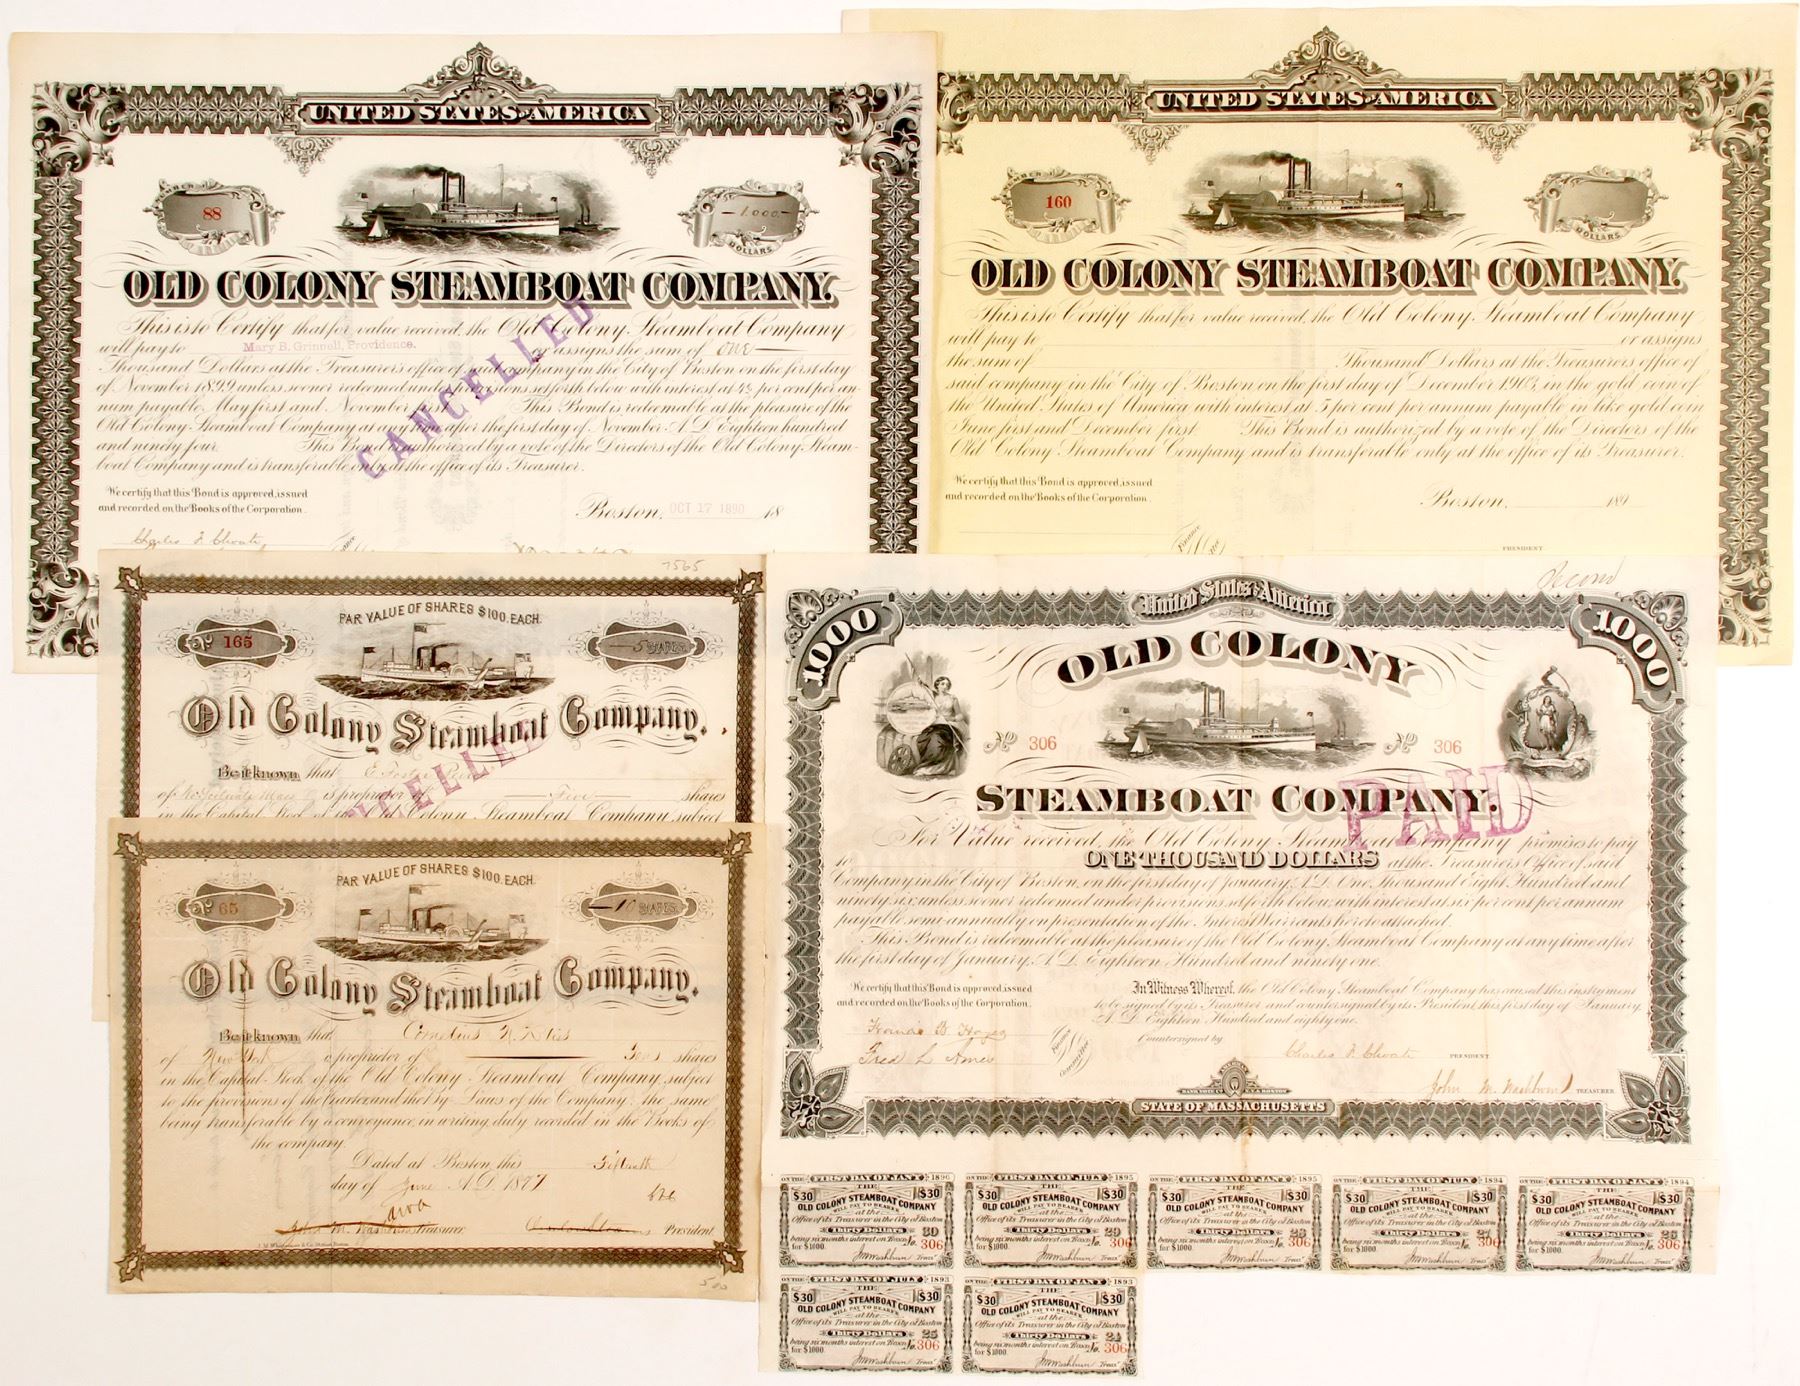 UNITED STATES OF AMERICA
NUMBER
88
-1.000.-
DOLLARS
OLD COLONY STEAMBOAT COMPANY.
This is to Certify that for value received, the Old Colony Steamboat Company
will pay to Mary B. Grinnell, Providence. or assigns the sum of ONE
Thousand Dollars at the Treasurer's office of said company in the City of Boston on the first day
of November 1899 unless sooner redeemed under provisions set forth below with interest at 4½ per cent per an-
num payable, May first and November first. This Bond is redeemable at the pleasure of the
Old Colony Steamboat Company at any time after the first day of November A.D. Eighteen hundred
and ninety four. This Bond is authorized by a vote of the Directors of the Old Colony Steam-
boat Company and is transferable only at the office of its Treasurer.
CANCELLED
We certify that this Bond is approved, issued
and recorded on the Books of the Corporation.
Boston, OCT 17 1890 18
Charles F. Choate
UNITED STATES OF AMERICA
NUMBER
160
DOLLARS
OLD COLONY STEAMBOAT COMPANY.
This is to Certify that for value received, the Old Colony Steamboat Company
will pay to or assigns
the sum of Thousand Dollars at the Treasurer's office of
said company in the City of Boston on the first day of December 1904, in the gold coin of
the United States of America with interest at 5 per cent per annum payable in like gold coin
June first and December first. This Bond is authorized by a vote of the Directors of the
Old Colony Steamboat Company and is transferable only at the office of its Treasurer.
We certify that this Bond is approved, issued
and recorded on the Books of the Corporation.
Boston, 189
Finance
PRESIDENT
7565
PAR VALUE OF SHARES $100. EACH.
No 165
5 SHARES
Old Colony Steamboat Company.
Be it known that E. Foster
of is proprietor of Five shares
in the Capital Stock of the Old Colony Steamboat Company, subject
CANCELLED
PAR VALUE OF SHARES $100. EACH.
No 65
10 SHARES
Old Colony Steamboat Company.
Be it known that Cornelius
of New York is proprietor of Ten shares
in the Capital Stock of the Old Colony Steamboat Company, subject
to the provisions of the Charter and the By-Laws of the Company: the same
being transferable by a conveyance in writing duly recorded in the Books of
the company.
Dated at Boston, this Fifteenth
day of June A.D. 1877
John M. Washburn Treasurer President
5.00
Second
United States of America
1000
1000
OLD COLONY
No 306
No 306
STEAMBOAT COMPANY.
PAID
For Value received, the Old Colony Steamboat Company promises to pay
to ONE THOUSAND DOLLARS at the Treasurer's Office of said
Company in the City of Boston, on the first day of January, A.D. One Thousand Eight Hundred and
ninety six unless sooner redeemed under provisions set forth below, with interest at six per cent per annum
payable semi-annually on presentation of the Interest Warrants hereto attached.
This Bond is redeemable at the pleasure of the Old Colony Steamboat Company at any time after
the first day of January, A.D. Eighteen Hundred and ninety one.
We certify that this Bond is approved, issued
and recorded on the Books of the Corporation.
In Witness Whereof, the Old Colony Steamboat Company has caused this instrument
to be signed by its Treasurer and countersigned by its President, this first day of January,
A.D. Eighteen Hundred and eighty one.
Francis B. Hayes
Fred L. Ames
Finance Committee
Countersigned by Charles F. Choate PRESIDENT
John M. Washburn TREASURER
STATE OF MASSACHUSETTS
ON THE FIRST DAY OF JANY 1896
$30 THE $30
OLD COLONY STEAMBOAT COMPANY
WILL PAY TO BEARER
at the
Office of its Treasurer in the City of Boston
Thirty Dollars 30
being six months interest on Bond No. 306
for $1000. JMWashburn Treas'r
ON THE FIRST DAY OF JULY 1895
$30 THE $30
OLD COLONY STEAMBOAT COMPANY
WILL PAY TO BEARER
at the
Office of its Treasurer in the City of Boston
Thirty Dollars 29
being six months interest on Bond No. 306
for $1000. JMWashburn Treas'r
ON THE FIRST DAY OF JANY 1895
$30 THE $30
OLD COLONY STEAMBOAT COMPANY
WILL PAY TO BEARER
at the
Office of its Treasurer in the City of Boston
Thirty Dollars 28
being six months interest on Bond No. 306
for $1000. JMWashburn Treas'r
ON THE FIRST DAY OF JULY 1894
$30 THE $30
OLD COLONY STEAMBOAT COMPANY
WILL PAY TO BEARER
at the
Office of its Treasurer in the City of Boston
Thirty Dollars 27
being six months interest on Bond No. 306
for $1000. JMWashburn Treas'r
ON THE FIRST DAY OF JANY 1894
$30 THE $30
OLD COLONY STEAMBOAT COMPANY
WILL PAY TO BEARER
at the
Office of its Treasurer in the City of Boston
Thirty Dollars 26
being six months interest on Bond No. 306
for $1000. JMWashburn Treas'r
ON THE FIRST DAY OF JULY 1893
$30 THE $30
OLD COLONY STEAMBOAT COMPANY
WILL PAY TO BEARER
at the
Office of its Treasurer in the City of Boston
Thirty Dollars 25
being six months interest on Bond No. 306
for $1000. JMWashburn Treas'r
ON THE FIRST DAY OF JANY 1893
$30 THE $30
OLD COLONY STEAMBOAT COMPANY
WILL PAY TO BEARER
at the
Office of its Treasurer in the City of Boston
Thirty Dollars 24
being six months interest on Bond No. 306
for $1000. JMWashburn Treas'r